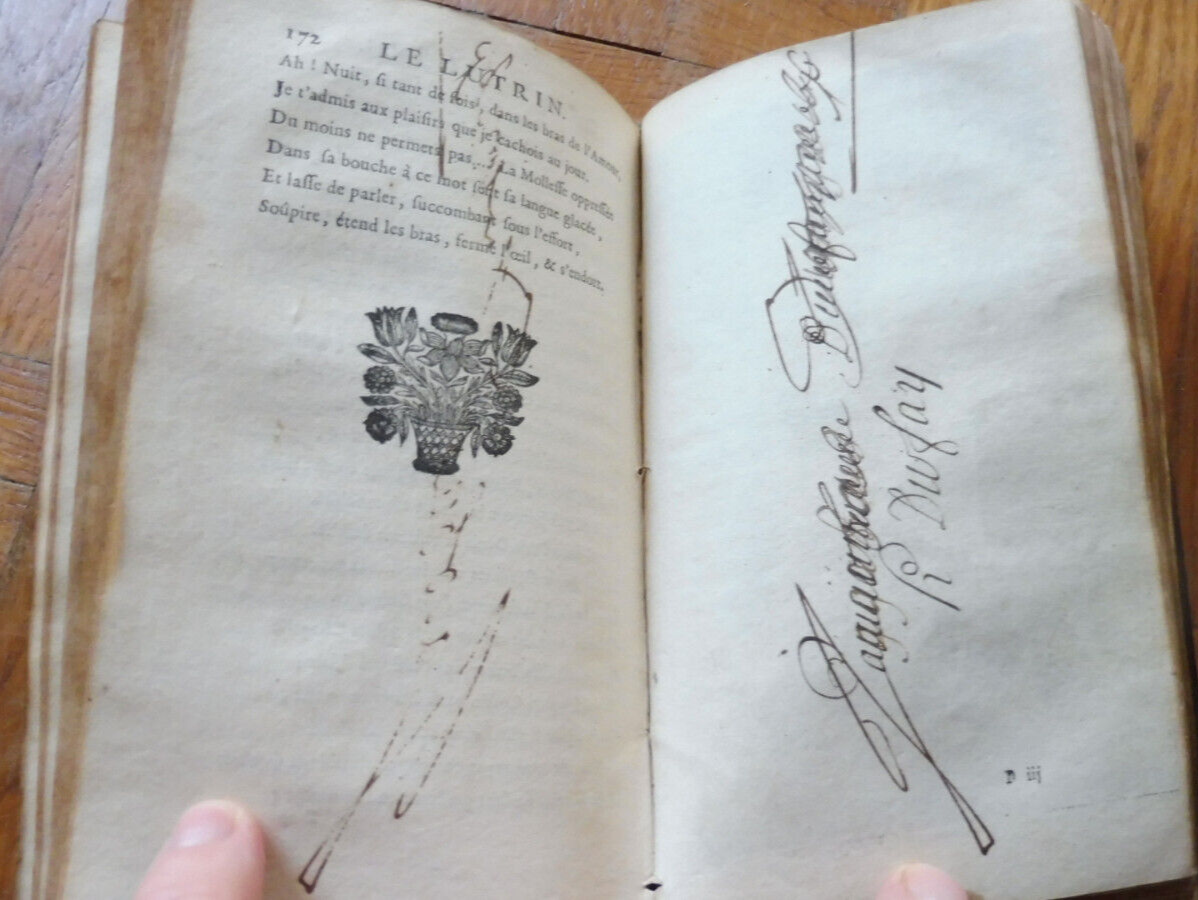 172 LE LUTRIN.
Ah ! Nuit, ſi tant de fois, dans les bras de l'Amour,
Je t'admis aux plaiſirs que je cachois au jour.
Du moins ne permets pas... La Molleſſe oppreſſée
Dans ſa bouche à ce mot ſent ſa langue glacée,
Et laſſe de parler, ſuccombant ſous l'effort,
Soûpire, étend les bras, ferme l'œil, & s'endort.
Dufaÿ
P iij